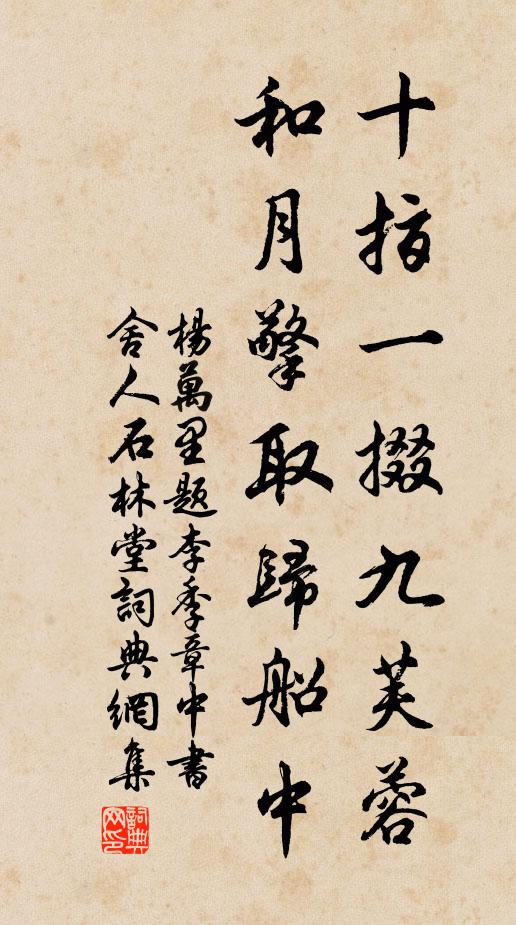 十指一掇九芙蓉
和月擎取歸船中
楊萬里題李季章中書
舍人石林堂詞典網集
詞典网印